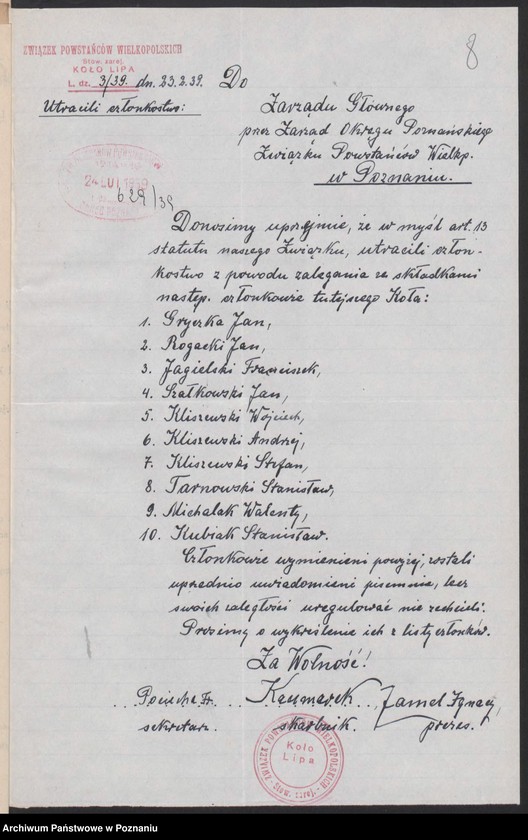 8
ZWIĄZEK POWSTAŃCÓW WIELKOPOLSKICH
(Stow. zarej.
KOŁO LIPA
L. dz. 3/39. dn. 23.2.39.
Utracili członkostwo:
Do
Zarządu Głównego
przez Zarząd Okręgu Poznańskiego
Związku Powstańców Wielkp.
w Poznaniu.
24 LUT 1939
629/39
Donosimy uprzejmie, że w myśl art. 13
statutu naszego Związku, utracili człon-
kostwo z powodu zalegania ze składkami
następ. członkowie tutejszego Koła:
1. Gryczka Jan,
2. Rogacki Jan,
3. Jagielski Franciszek,
4. Szałkowski Jan,
5. Kliszewski Wojciech,
6. Kliszewski Andrzej,
7. Kliszewski Stefan,
8. Tarnowski Stanisław,
9. Michalak Walenty,
10. Kubiak Stanisław.
Członkowie wymienieni powyżej, zostali
uprzednio uwiadomieni pisemnie, lecz
swoich zaległości uregulować nie zechcieli.
Prosimy o wykreślenie ich z listy członków.
Za Wolność!
Pociecha Fr. Kaczmarek Jamel Ignacy
sekretarz. skarbnik. prezes.
ZWIĄZEK POWSTAŃCÓW WIELKOPOLSKICH
Koło
Lipa
Archiwum Państwowe w Poznaniu
www.szukajwarchiwach.gov.pl